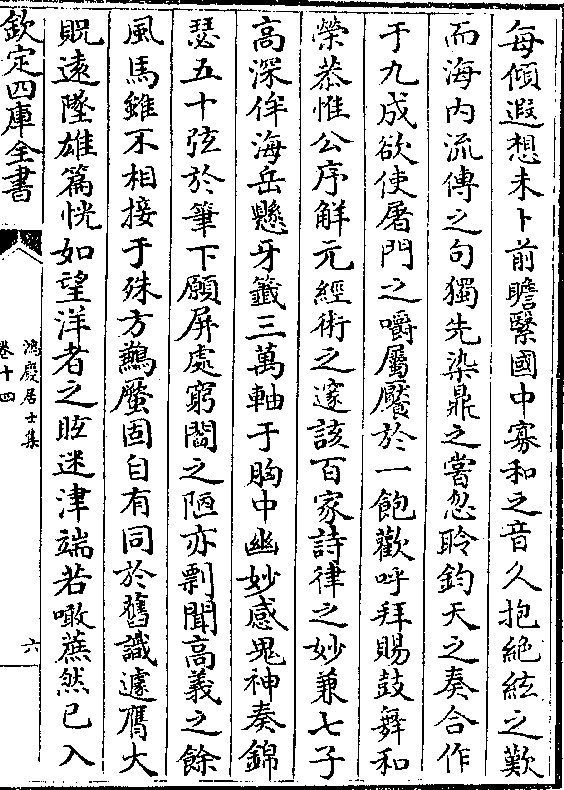 每傾遐想未卜前瞻緊國中寡和之音久抱絶絃之歎
而海内流傳之句獨先染鼎之嘗忽聆鈞天之奏合作
于九成欲使屠門之嚼屬饜於一飽歡呼拜賜鼓舞和
榮恭惟公序觧元經術之邃該百家詩律之妙兼七子
高深侔海岳懸牙籤三萬軸于胸中幽妙感鬼神奏錦
瑟五十弦於筆下願屏處窮閻之陋亦剽聞高義之餘
風馬雖不相接于殊方鶼蟨固自有同於舊識遽膺大
貺遠墜雄篇恍如望洋者之眩迷津端若噉蔗然已入
欽定四庫全書
鴻慶居士集
卷十四
六